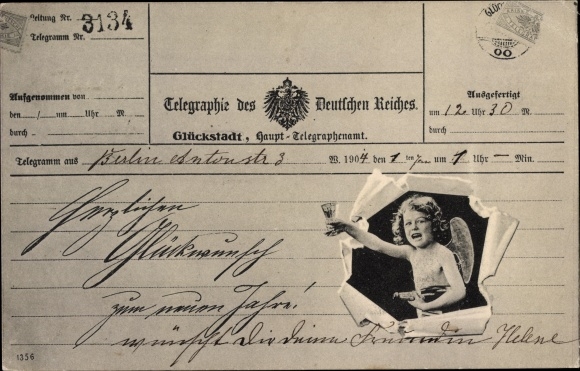 Leitung Nr.
Telegramm Nr. 3134
Aufgenommen von
den / um Uhr M.
durch
Telegraphie des Deutschen Reiches.
Glückstadt, Haupt-Telegraphenamt.
Ausgefertigt
um 12 Uhr 30 M.
durch
Telegramm aus Berlin Antonstr 3 W. 1904 den 1 ten Jan um 1 Uhr — Min.
Herzlichen
Glückwunsch
zum neuen Jahre!
wünscht Dir deine Freundin Helene
1356